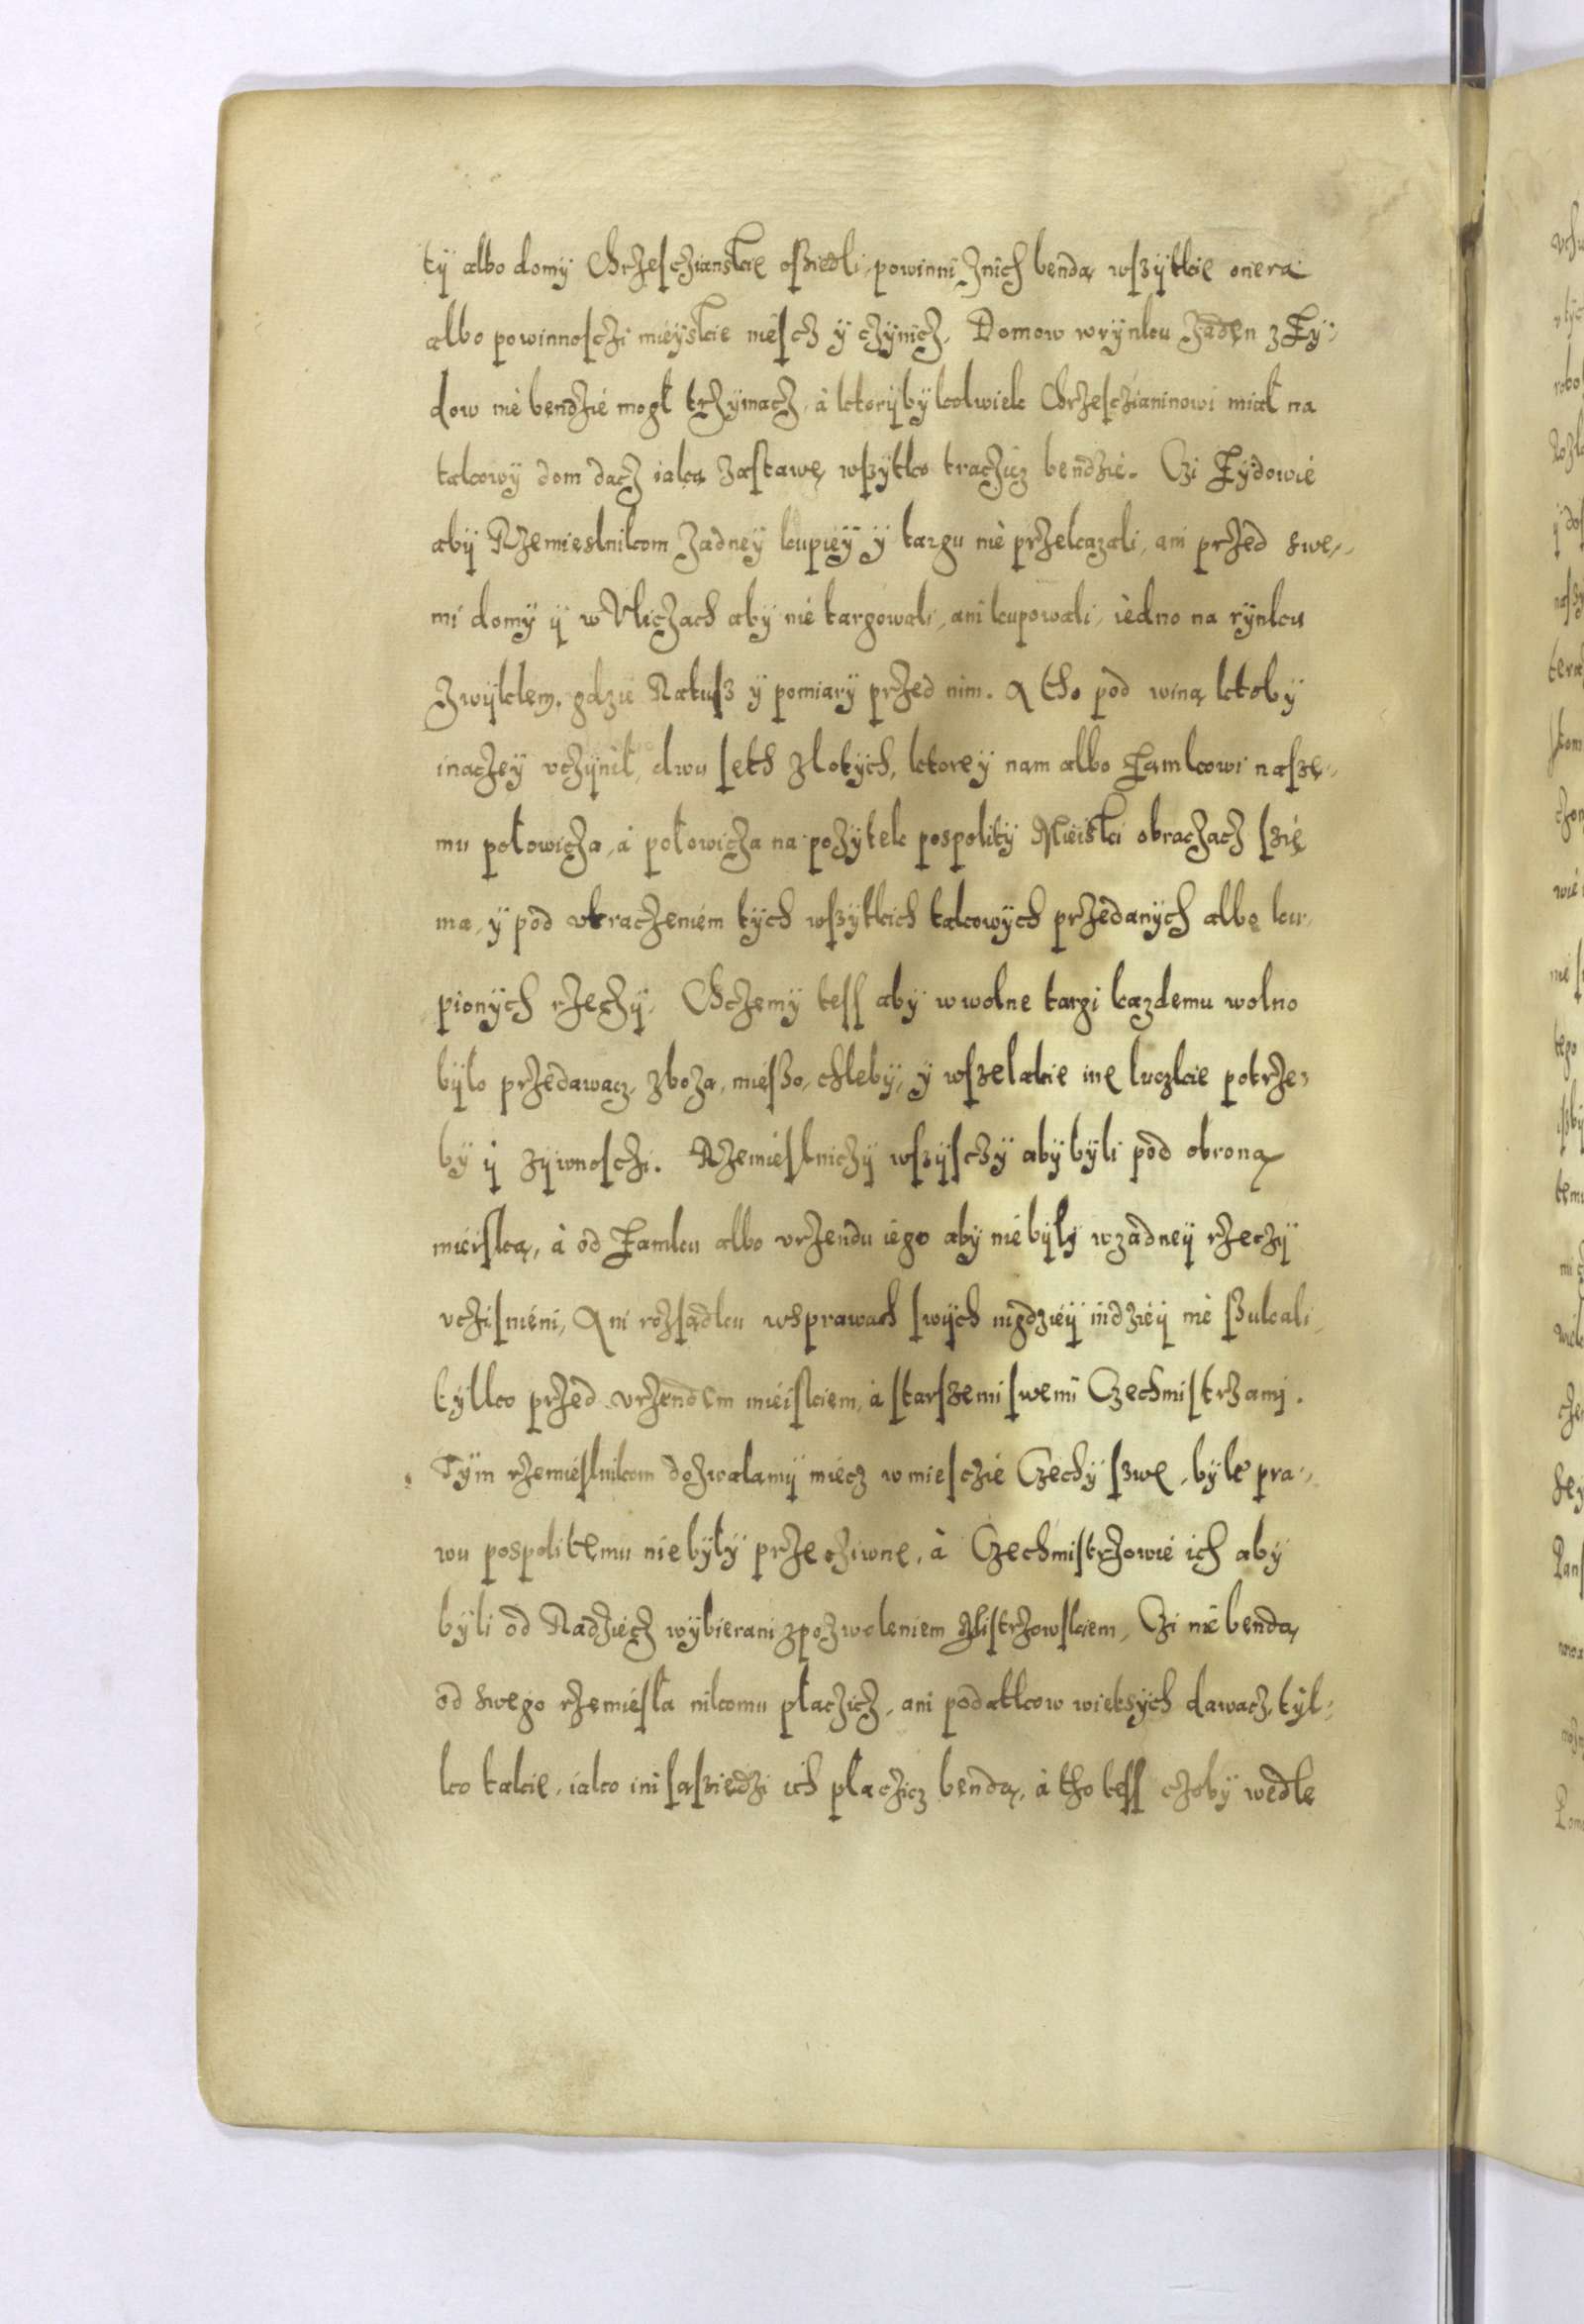 ty albo domy Chrzesczianskie oßiedli, powinni znich benda wszytkie onera
albo powinnosczi mieyskie niescz y czynicz. Domow wrynku żaden z Ży,,
dow nie bendzie mogł trzymacz, à ktorybykolwiek Chrzesczianinowi miał na
takowy dom dacz iaka zastawę, wszytko traczicz bendzie. Czi Żydowie
aby Rzemieslnikom zadney kupiey y targu nie przekazali, ani przed swe,,
mi domy y w Vliczach aby nie targowali, ani kupowali, iedno na rynku
zwyklem, gdzie Ratusz y pomiary przed nim. A tho pod winą ktoby
inaczey vczynił, dwu seth złotych, ktorey nam albo Zamkowi nasze,,
mu połowicza, à połowicza na pożytek pospolity Mieiski obraczacz szię
ma, y pod vtraczeniem tych wszytkich takowych przedanych albo ku,,
pionych rzeczy. Chczemy tess aby w wolne targi kazdemu wolno
było przedawacz, zboza, mießo, chleby, y wszelakie ine luczkie potrze,,
by y zywnosczi. Rzemiesłniczy wszysczy aby byli pod obroną
mieiską, à od Zamku albo vrzendu iego aby niebyły wzadney rzeczy
vczisnieni, Ani rozsądku wsprawach swych nigdziey indziey nie ßukali,
tylko przed vrzendem mieiskiem, à starszemi swemi Czechmistrzami.
Tym rzemieslnikom dozwalamy miecz w miesczie Czechy szwe, byle pra,,
wu pospolitemu niebyły przecziwne, à Czechmistrzowie ich aby
byli od Radziecz wybierani zpozwoleniem Mistrzowskiem, Czi nie benda
od swego rzemiesła nikomu płaczicz, ani podatkow wietsych dawacz, tyl,,
ko takie, iako ini sąsziedzi ich płaczicz benda, à tho tess czoby wedle